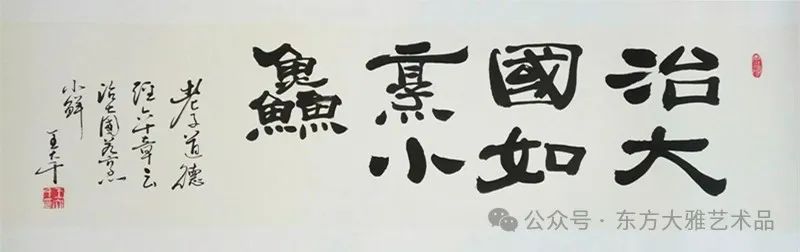 治大
國如
烹小
鱻
老子道德
經六十章云
治大國若烹
小鮮
公众号·东方大雅艺术品